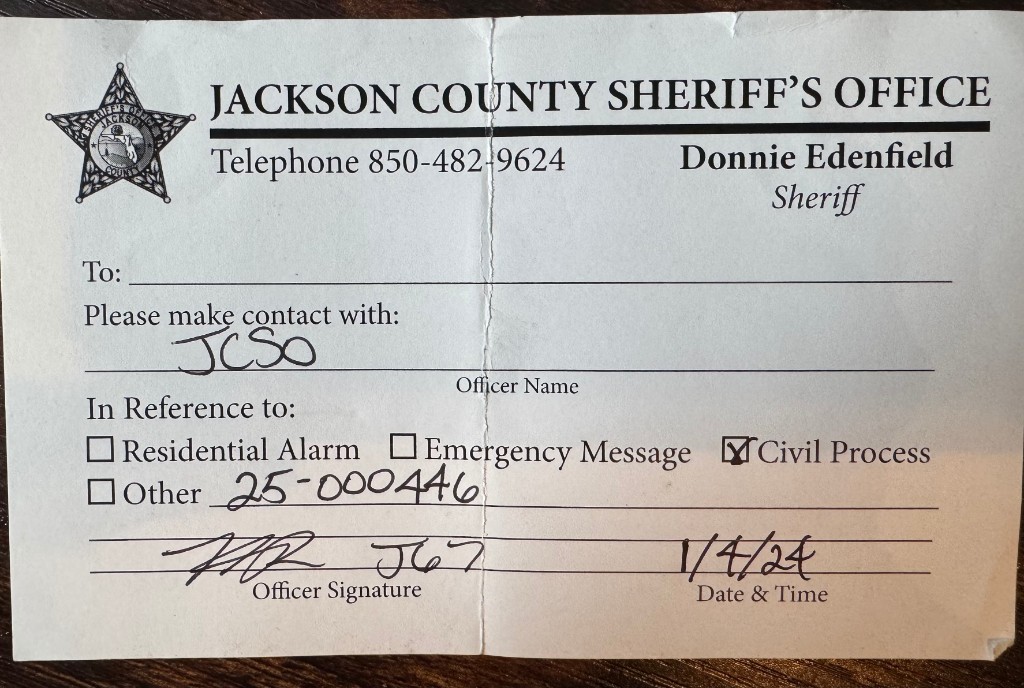 JACKSON COUNTY SHERIFF'S OFFICE
Telephone 850-482-9624
Donnie Edenfield
Sheriff
SHERIFF'S OFFICE
JACKSON
COUNTY
To:
Please make contact with:
JCSO
Officer Name
In Reference to:
Residential Alarm Emergency Message Civil Process
Other 25-000446
J67 1/4/24
Officer Signature Date & Time